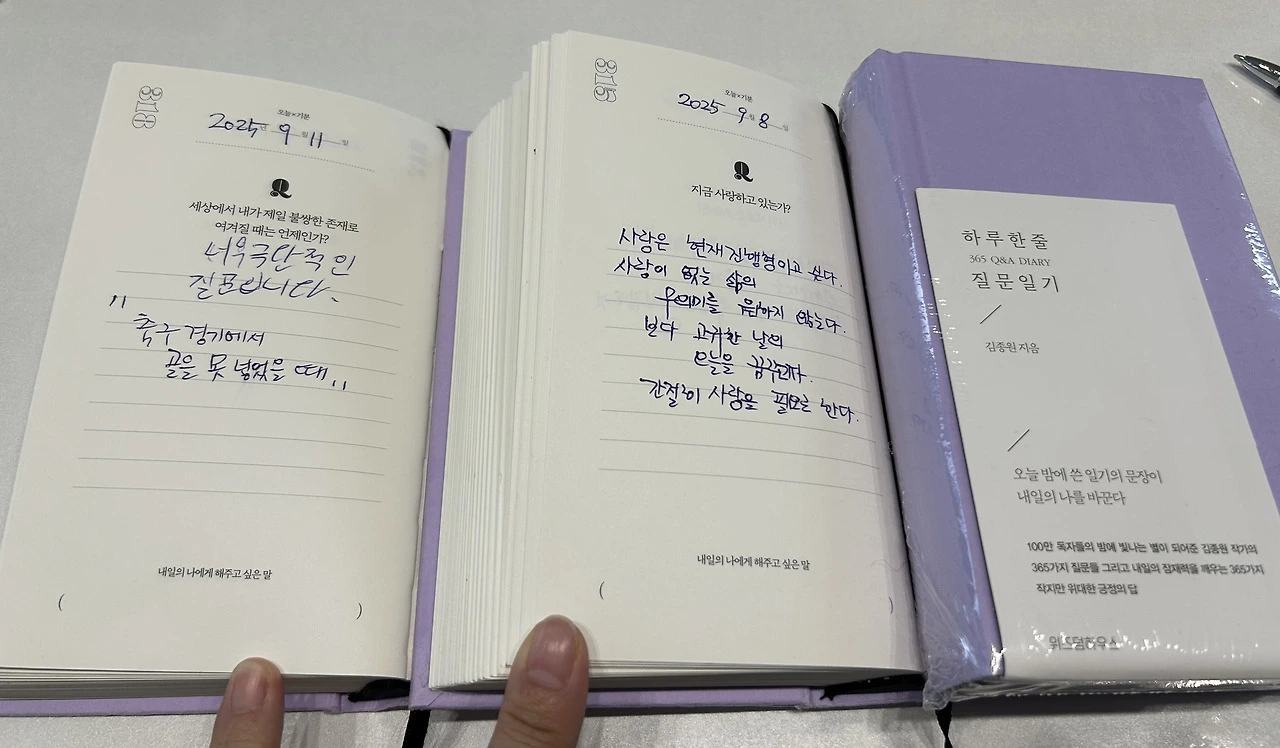 오늘×기분
2025년 9월 11일
Q
세상에서 내가 제일 불쌍한 존재로
여겨질 때는 언제인가?
너무 극단적인
질문입니다.
"축구 경기에서
골을 못 넣었을 때"
내일의 나에게 해주고 싶은 말
( )
오늘×기분
2025 9월 8일
Q
지금 사랑하고 있는가?
사랑은 현재진행형이고 싶다.
사랑이 없는 삶의
무의미를 원하지 않는다.
보다 고귀한 날의
오늘을 꿈꾼다.
간절히 사랑을 필요로 한다.
내일의 나에게 해주고 싶은 말
( )
하루 한 줄
365 Q&A DIARY
질문 일기
김종원 지음
오늘 밤에 쓴 일기의 문장이
내일의 나를 바꾼다
100만 독자들의 밤에 빛나는 별이 되어준 김종원 작가의
365가지 질문들 그리고 내일의 잠재력을 깨우는 365가지
작지만 위대한 긍정의 답
위즈덤하우스